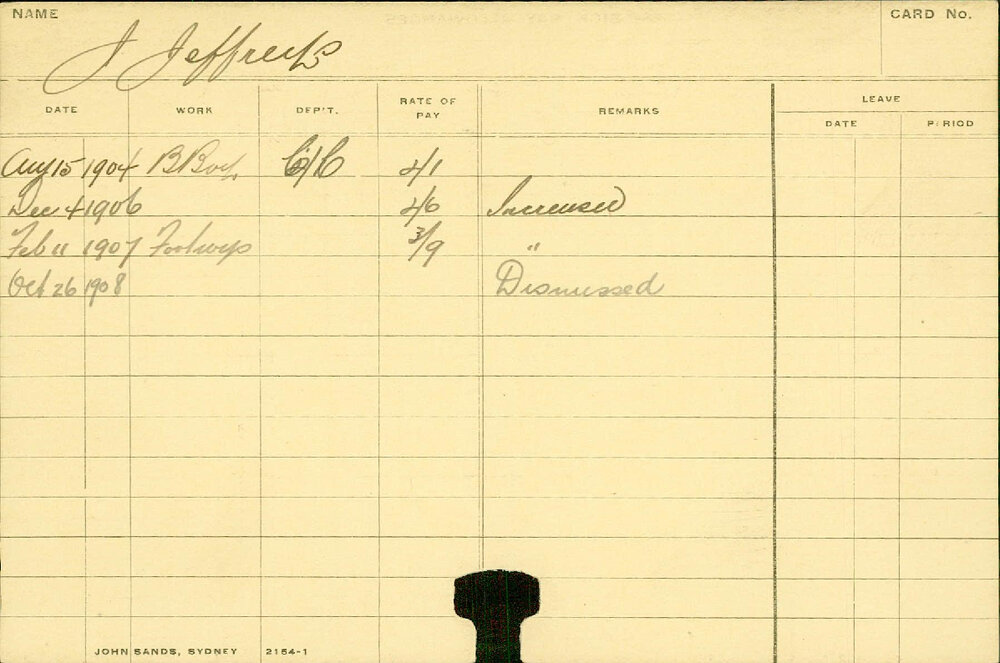 NAME CARD No.
J Jeffreys
DATE WORK DEP'T. RATE OF PAY REMARKS LEAVE
DATE PERIOD
Aug 15 1904 B Boy 2/1
Dec 4 1906 2/6 Increased
Feb 11 1907 3/9 "
Oct 26 1908 Dismissed
JOHN SANDS, SYDNEY 2154-1